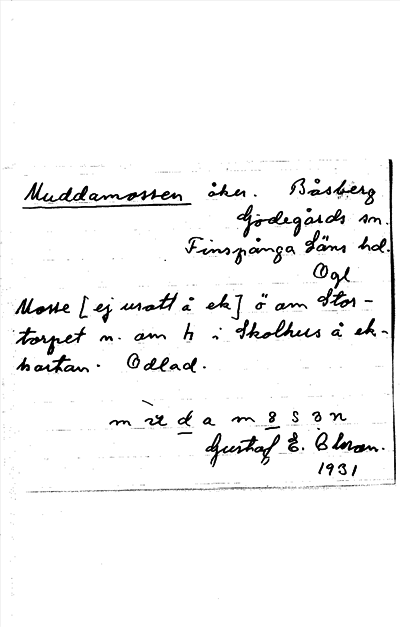 Muddamossen åker. Båsberg
Godegårds sn.
Finspånga läns hd.
Ögl
Mosse [ej utsatt å ek] ö om Stor-
torpet n. om h i Skolhus å ek-
kartan. Odlad.
Gustaf E.
1931